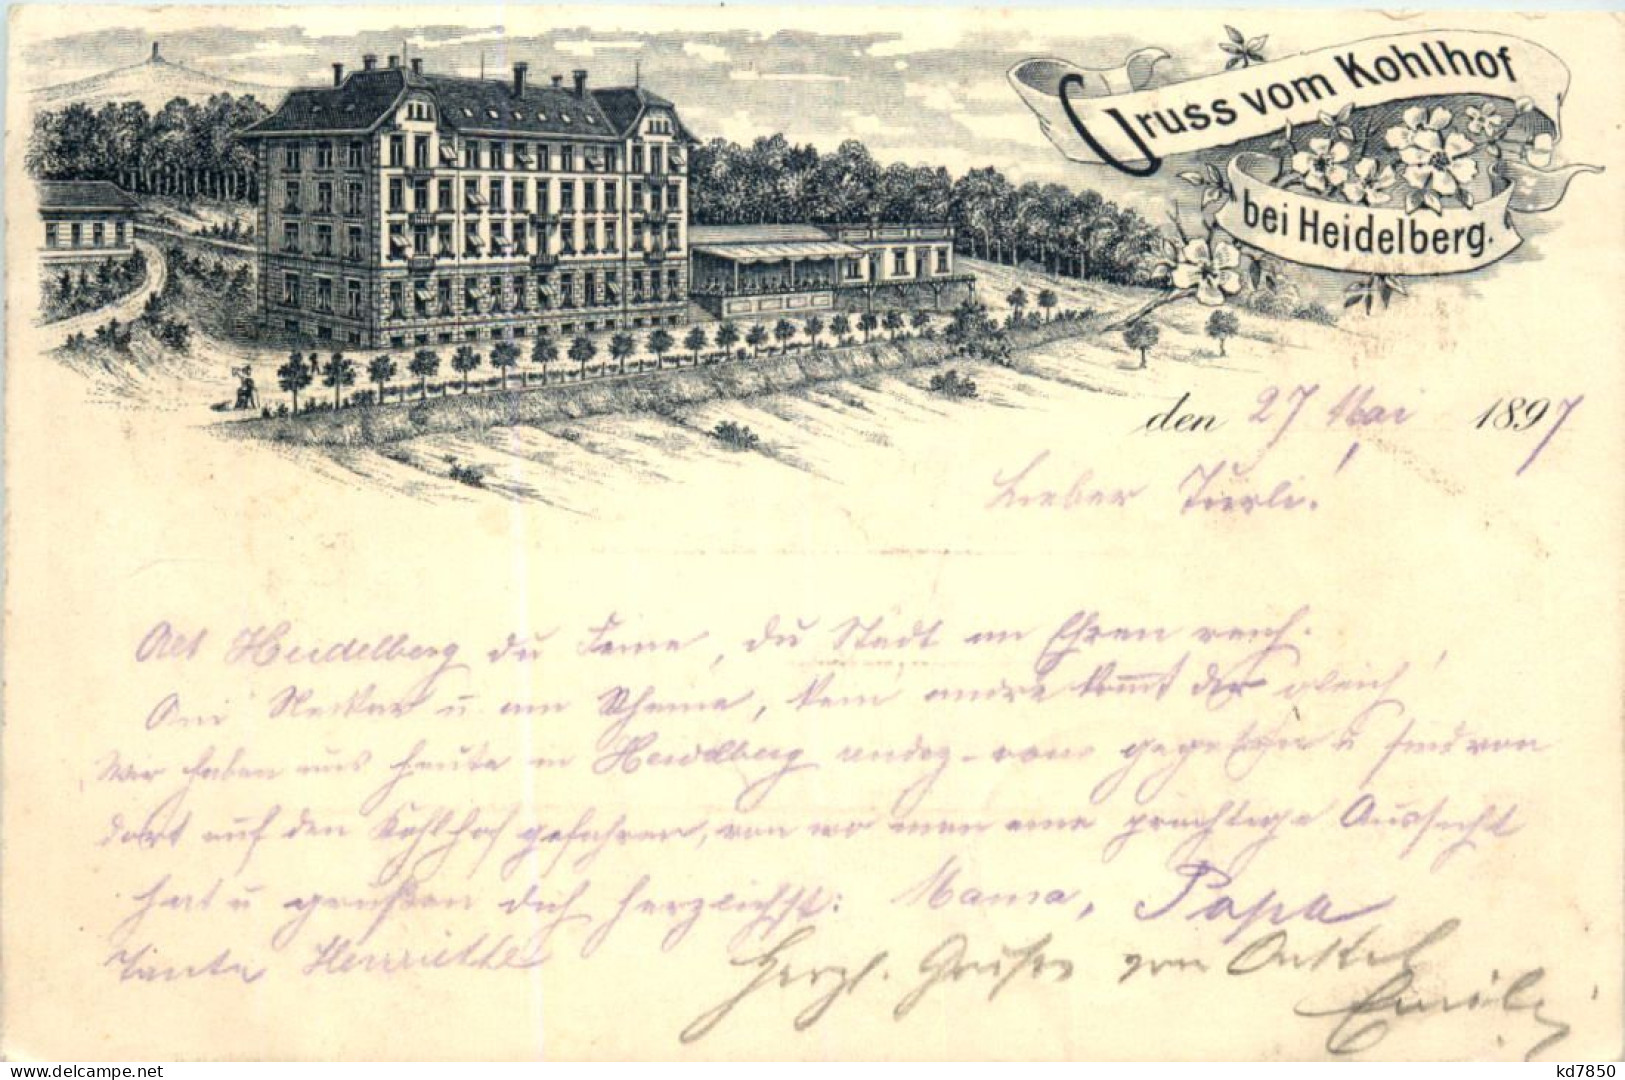 Gruss vom Kohlhof
bei Heidelberg.
den 27 Mai 1897
Lieber Turli!
Alt Heidelberg du Feine, du Stadt an Ehren reich.
Am Neckar u. am Rheine, kein andre kommt dir gleich!
Wir haben uns heute in Heidelberg u sind von
dort auf den Kohlhof gefahren, von wo man eine prächtige Aussicht
hat u grüßen dich herzlichst: Mama, Papa
Tante Henriette
Herzl. Grüße von Onkel
Emil
delcampe.net
kd7850